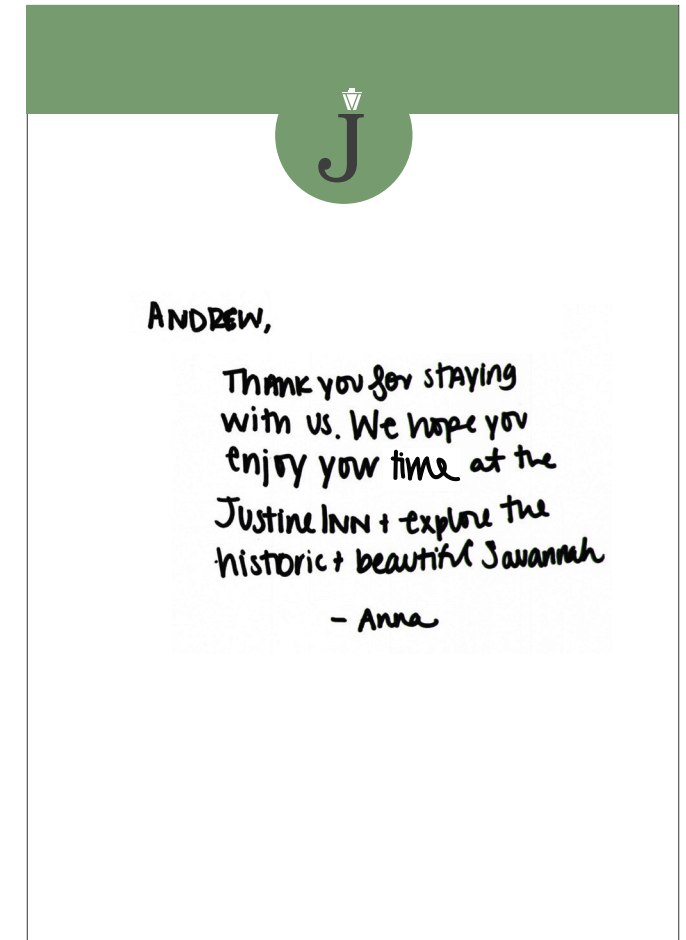 J
ANDREW,
Thank you for staying
with us. We hope you
enjoy your time at the
Justine INN + explore the
historic + beautiful Savannah
- Anna